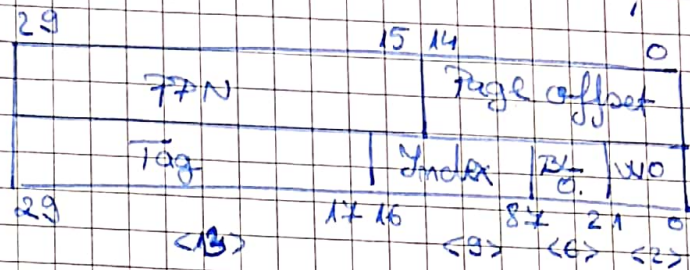 29 15 14 0
PPN Page offset
Tag Index Bl. O. WO
29 17 16 8 7 2 1 0
<13> <9> <6> <2>